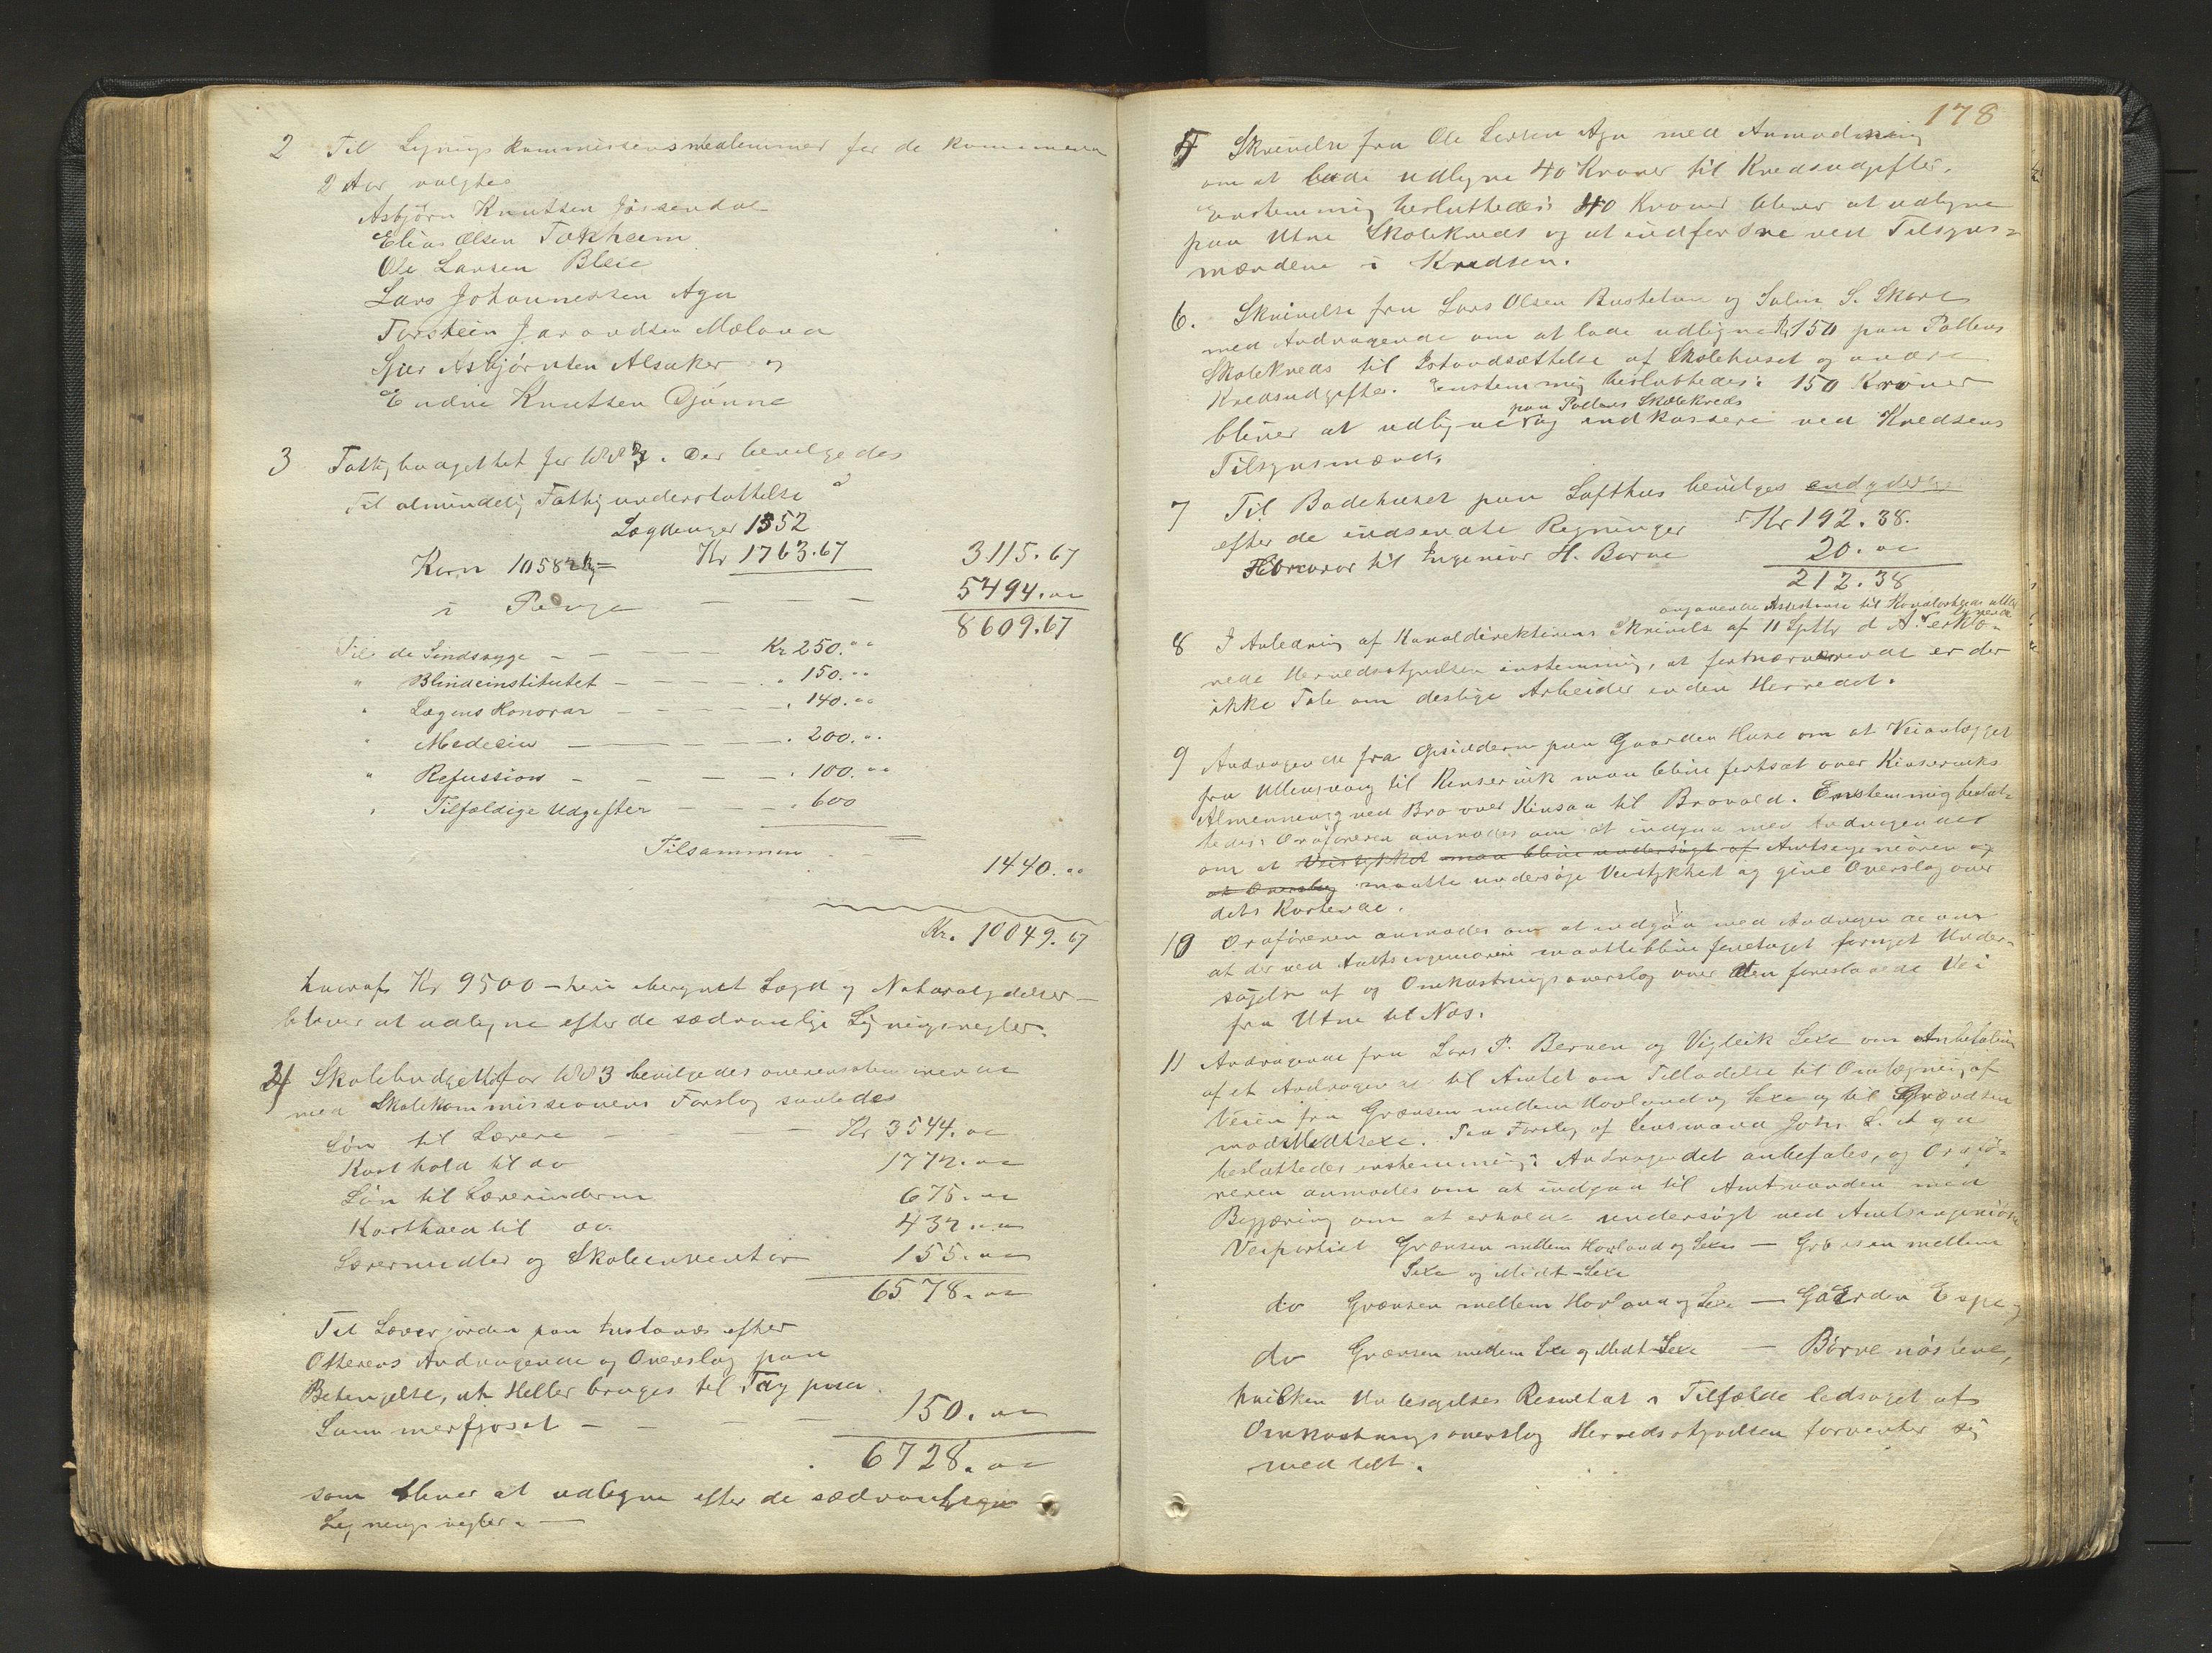 2 Til Lignings kommissionsmedlemmer for de kommende
2 Aar valgtes
Asbjörn Knutsen Jösendal
Elias Olsen Tokheim
Ole Larsen Bleie
Lars Johannessen Aga
Torstein Jarandsen Mæland
Sjur Asbjörnsen Alsaker og
Endre Knutsen Djönne
3 Fattigbudgettet for 1883. Der bevilgedes
Til almindelig Fattigunderstøttelse
Lægdenger 1352
Korn 10582 kg = Kr 1763.67 3115.67
i Penge — — — 5494.00
8609.67
Til de Sindssyge — — — Kr 250.00
" Blindeinstitutet — — — " 150.00
" Lægens Honorar — — — " 140.00
" Medecin — — — " 200.00
" Refussion — — — " 100.00
" Tilfældige Udgifter — — — " 600
Tilsammen — — 1440.00
Kr. 10049.67
hvoraf Kr 9500 — heri iberegnet Lægd og Naturalydelser —
bliver at udligne efter de sædvanlige Ligningsregler.
4 Skolebudgettet for 1883 bevilgedes overensstemmende
med Skolekommissionens Forslag saaledes
Løn til Lærere — — — Kr 3544.00
Kosthold til do 1772.00
Løn til Lærerinderne 675.00
Kosthold til do. 432.00
Læremidler og Skoleinventar 155.00
6578.00
Til Lærerjorden paa efter
Otterens Andragende og Overslag paa
Betingelse, at Heller bruges til Tag paa
Sommerfjøset — — — 150.00
6728.00
som bliver at udligne efter de sædvanlige
Ligningsregler. —
178
5 Skrivelse fra Ole Larsen Aga med Anmodning
om at lade udligne 40 Kroner til Kredsudgifter.
Enstemmig besluttedes: 40 Kroner bliver at udligne
paa Utne Skolekreds og at indfordre ved Tilsyns-
mændene i Kredsen.
6. Skrivelse fra Lars Olsen Bustetun og Salm S. Skare
med Andragende om at lade udligne Kr 150 paa Pollens
Skolekreds til Istandsættelse af Skolehuset og andre
Kredsudgifter. Enstemmig besluttedes: 150 Kroner
paa Pollens Skolekreds
bliver at udligne og indkassere ved Kredsens
Tilsynsmænd.
7 Til Badehuset paa Lofthus bevilges endvidere
efter de indsendte Regninger Kr 192.38.
Honorar til Ingeniør H. Børve 20.00
212.38
angaaende Assistanse til
8 I Anledning af Kanaldirektørens Skrivelse af 11 Septbr d A. erklæ-
rede Herredsstyrelsen enstemmig, at fornærværende er der
ikke Tale om deslige Arbeider inden Herredet.
9 Andragende fra Opsidderne paa Gaarden Huse om at Veianlægget
fra Ullensvang til Kinservik maa blive fortsat over Kinserviks
Almenning ved Bro over Kinsaa til Bravold. Enstemmig beslut-
tedes: Ordføreren anmodes om at indgaa med Andragende
om at Veistykket maa blive undersøgt af Amtsingeniøren og
at Overslag maatte undersøge Veistykket og give Overslag over
dets Kostende.
10 Ordføreren anmodes om at indgaa med Andragende om
at der ved Amtsingeniøren maatte blive foretaget fornyet Under-
søgelse af og Omkostningsoverslag over den foreslaaede Vei
fra Utne til Nes.
11 Andragende fra Lars P. Berven og Vigleik Sexe om Anbefaling
af et Andragende til Amtet om Tilladelse til Omlægning af
Veien fra Grænsen mellem Hovland og Sexe og til Grændsen
mod Midtsexe. Paa Forslag af Lensmand Johs. L. Aga
besluttedes enstemmig: Andragendet anbefales, og Ordfø-
reren anmodes om at indgaa til Amtmanden med
Begjæring om at erholde undersøgt ved Amtsingeniøren
Veipartiet Grænsen mellem Hovland og Sexe — Grænsen mellem
Sexe og Midt-Sexe
do Grænsen mellem Hovland og Sexe — Gaarden Espe og
do Grænsen mellem Sexe og Midt-Sexe — Børve nöstene,
hvilken Undersøgelses Resultat i Tilfælde ledsaget af
Omkostningsoverslag Herredsstyrelsen forventer sig
meddelt.